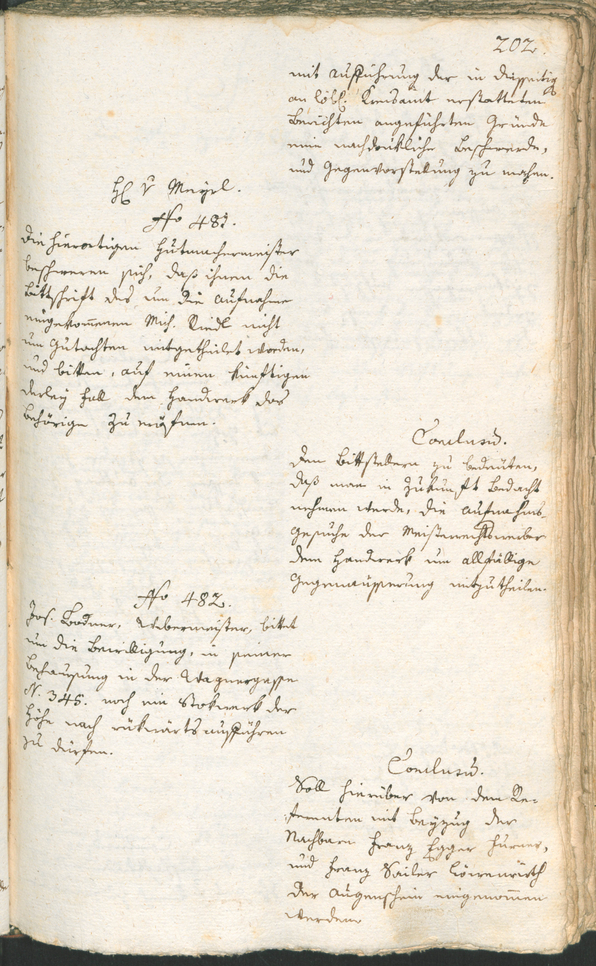 202.
mit Ausführung der in diesseitig
an löbl. Kreisamt erstatteten
Berichten angeführten Gründe
eine nachdrückliche Beschwerde,
und Gegenvorstellung zu machen.
H v Mayrl.
No 481.
Die hierortigen Hutmachermeister
beschweren sich, daß ihnen die
Bittschrift des um die Aufnahme
eingekommenen Mich. Riedl nicht
um Gutachten mitgetheilet worden,
und bitten, auf einen künftigen
derley Fall dem Handwerk das
Behörige zu eröfnen.
Conclusũ.
Den Bittstellern zu bedeuten,
daß man in Zukunft Bedacht
nehmen werde, die Aufnahms-
gesuche der Meisterrechtswerber
dem Handwerk um allfällige
Gegenäusserung mitzutheilen.
No 482.
Jos. Bodner, Webermeister, bittet
um die Bewilligung, in seiner
Behausung in der Wagnergasse
N. 345. noch ein Stokwerk der
Höhe nach rükwärts aufführen
zu dürfen.
Conclusũ.
Soll hierüber von dem Re-
ferenten mit Beyzug der
Nachbarn Franz Egger Hurner,
und Franz Sailer Löwenwirth
der Augenschein eingenommen
werden.